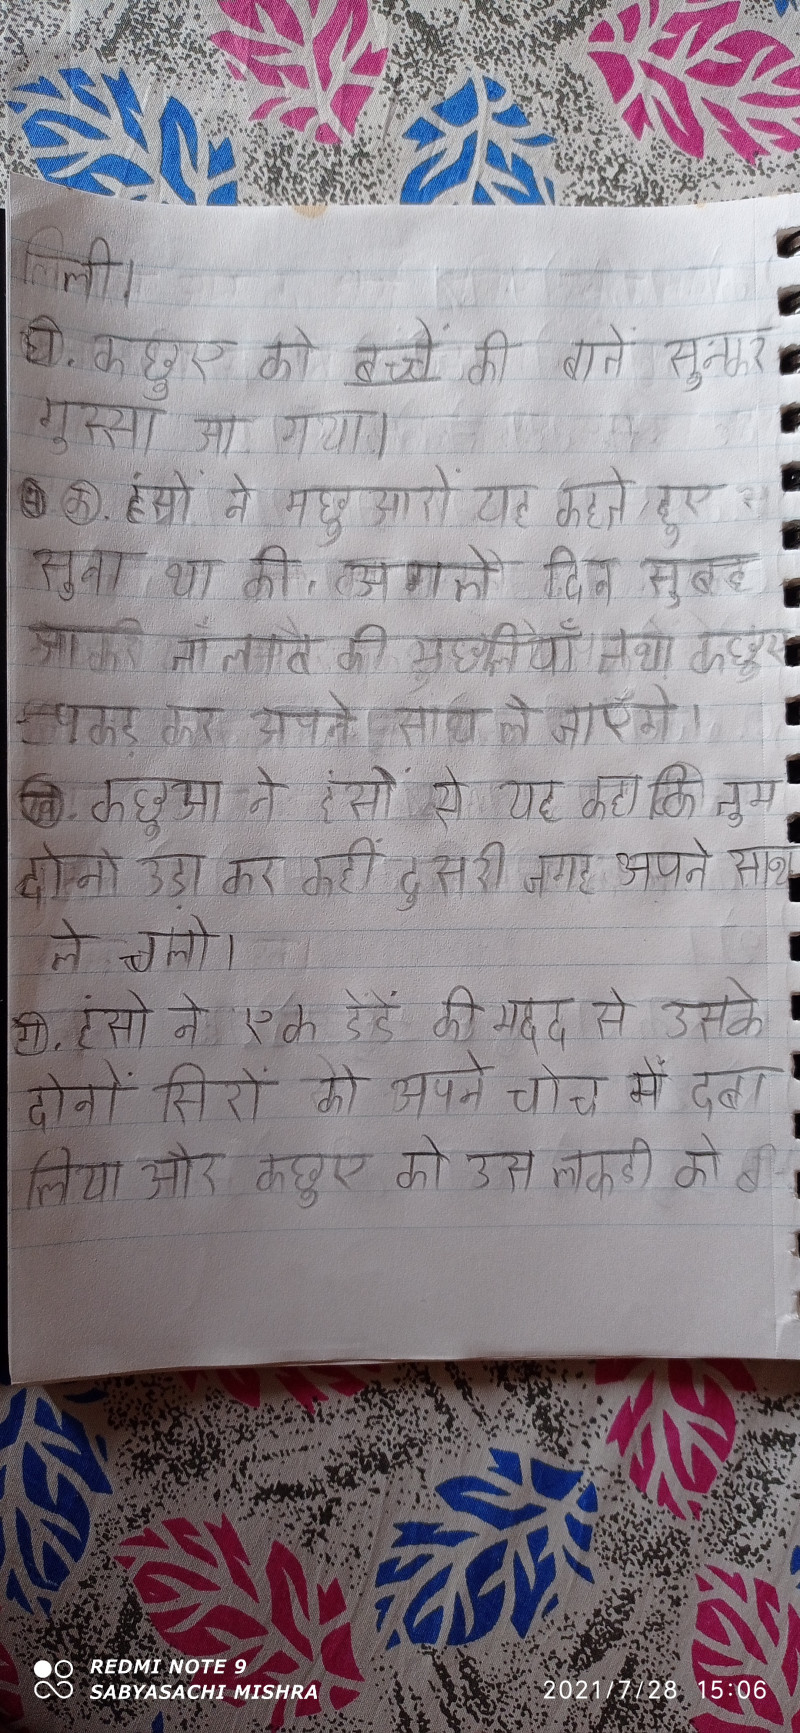 लिली।
घ. कछुए को बच्चें की बातें सुनकर
गुस्सा आ गया।
क. हंसों ने मछुआरों यह कहते हुए
सुना था की, अगले दिन सुबह
आकर की मछलीयाँ तथा कछुए
पकड़ कर अपने साथ ले जाएँगे।
ख. कछुआ ने हंसों से यह कहा कि तुम
दोनो उड़ा कर कहीं दुसरी जगह अपने साथ
ले चलो।
ग. हंसो ने एक डंडें की मदद से उसके
दोनों सिरों को अपने चोच में दबा
लिया और कछुए को उस लकडी को
REDMI NOTE 9
SABYASACHI MISHRA
2021/7/28 15:06